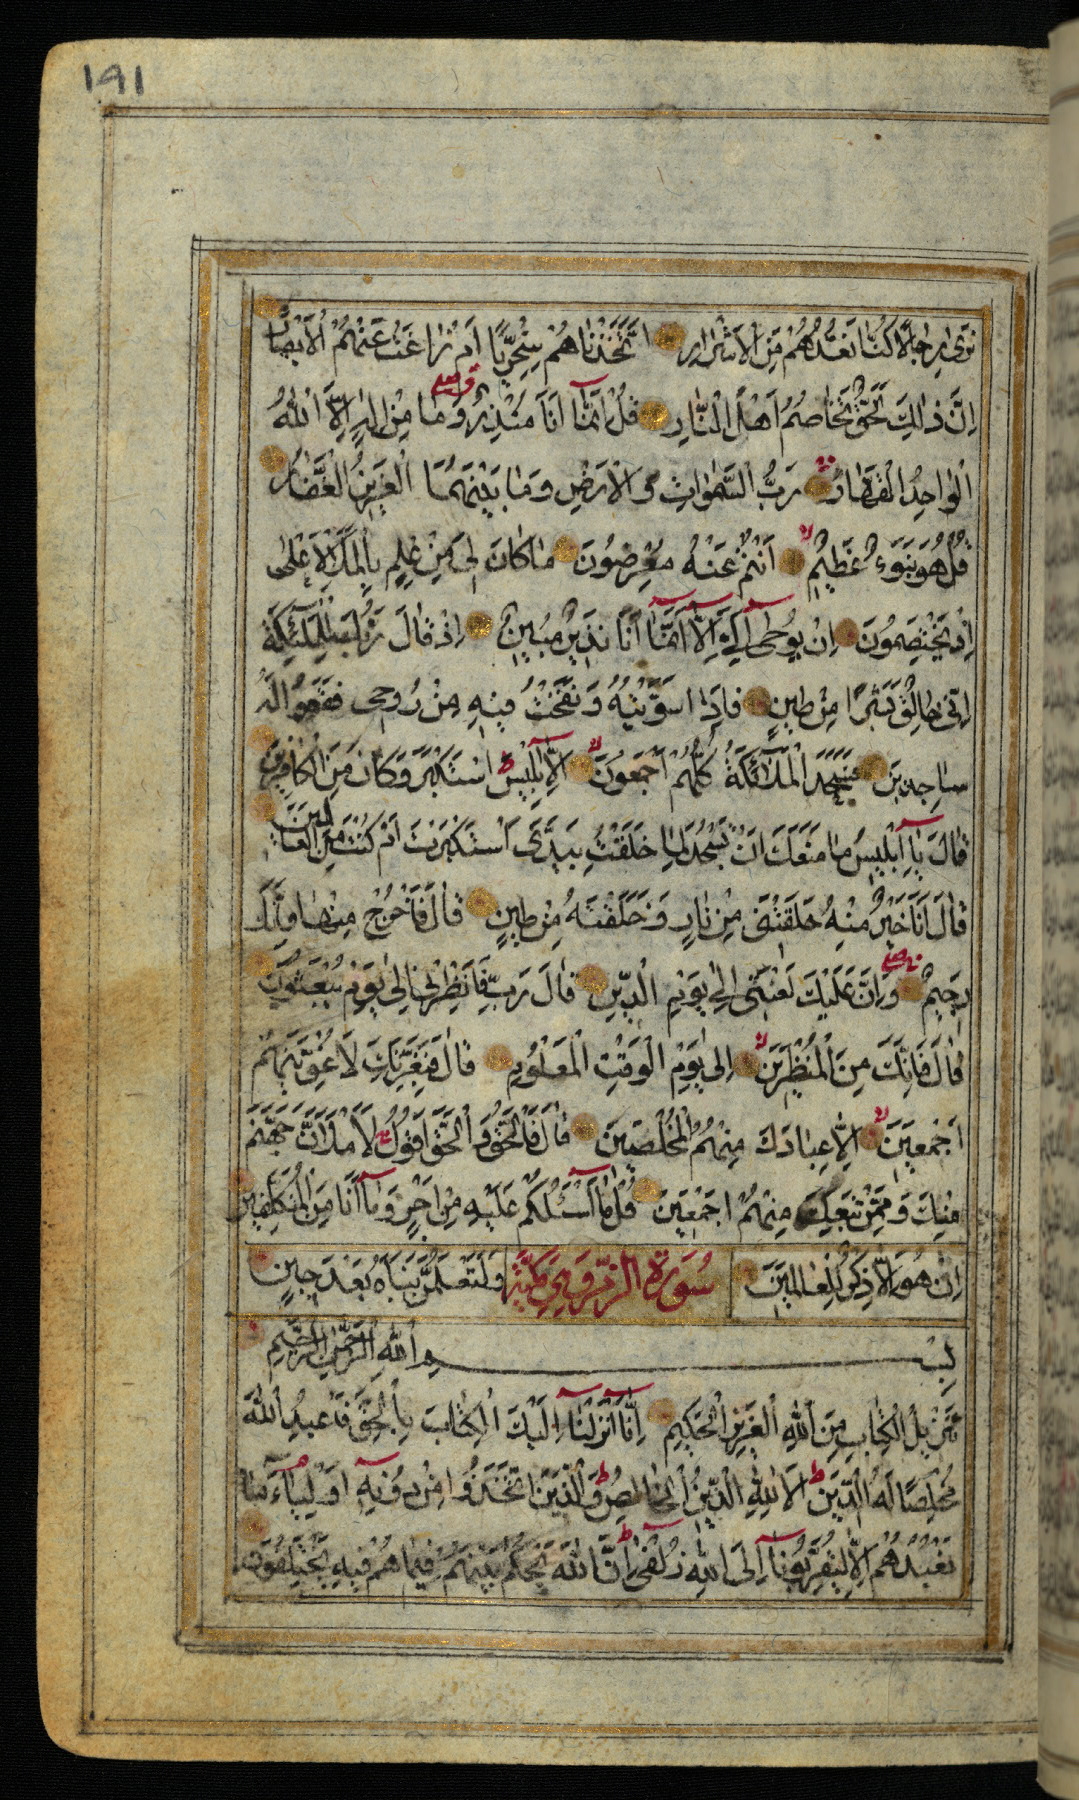 191
نَرٰى رِجَالًا كُنَّا نَعُدُّهُمْ مِنَ الْاَشْرَارِ اَتَّخَذْنَاهُمْ سِخْرِيًّا اَمْ زَاغَتْ عَنْهُمُ الْاَبْصَارُ
اِنَّ ذٰلِكَ لَحَقٌّ تَخَاصُمُ اَهْلِ النَّارِ قُلْ اِنَّمَا اَنَا مُنْذِرٌ وَمَا مِنْ اِلٰهٍ اِلَّا اللّٰهُ
الْوَاحِدُ الْقَهَّارُ رَبُّ السَّمٰوَاتِ وَالْاَرْضِ وَمَا بَيْنَهُمَا الْعَزِيزُ الْغَفَّارُ
قُلْ هُوَ نَبَؤٌا عَظِيمٌ اَنْتُمْ عَنْهُ مُعْرِضُونَ مَا كَانَ لِيَ مِنْ عِلْمٍ بِالْمَلَاِ الْاَعْلٰى
اِذْ يَخْتَصِمُونَ اِنْ يُوحٰى اِلَيَّ اِلَّا اَنَّمَا اَنَا نَذِيرٌ مُبِينٌ اِذْ قَالَ رَبُّكَ لِلْمَلٰئِكَةِ
اِنِّى خَالِقٌ بَشَرًا مِنْ طِينٍ فَاِذَا سَوَّيْتُهُ وَنَفَخْتُ فِيهِ مِنْ رُوحِى فَقَعُوا لَهُ
سَاجِدِينَ فَسَجَدَ الْمَلٰئِكَةُ كُلُّهُمْ اَجْمَعُونَ اِلَّا اِبْلِيسَ اسْتَكْبَرَ وَكَانَ مِنَ الْكَافِرِينَ
قَالَ يَا اِبْلِيسُ مَا مَنَعَكَ اَنْ تَسْجُدَ لِمَا خَلَقْتُ بِيَدَيَّ اَسْتَكْبَرْتَ اَمْ كُنْتَ مِنَ الْعَالِينَ
قَالَ اَنَا خَيْرٌ مِنْهُ خَلَقْتَنِى مِنْ نَارٍ وَخَلَقْتَهُ مِنْ طِينٍ قَالَ فَاخْرُجْ مِنْهَا فَاِنَّكَ
رَجِيمٌ وَاِنَّ عَلَيْكَ لَعْنَتِى اِلٰى يَوْمِ الدِّينِ قَالَ رَبِّ فَاَنْظِرْنِى اِلٰى يَوْمِ يُبْعَثُونَ
قَالَ فَاِنَّكَ مِنَ الْمُنْظَرِينَ اِلٰى يَوْمِ الْوَقْتِ الْمَعْلُومِ قَالَ فَبِعِزَّتِكَ لَاُغْوِيَنَّهُمْ
اَجْمَعِينَ اِلَّا عِبَادَكَ مِنْهُمُ الْمُخْلَصِينَ قَالَ فَالْحَقُّ وَالْحَقَّ اَقُولُ لَاَمْلَاَنَّ جَهَنَّمَ
مِنْكَ وَمِمَّنْ تَبِعَكَ مِنْهُمْ اَجْمَعِينَ قُلْ مَا اَسْئَلُكُمْ عَلَيْهِ مِنْ اَجْرٍ وَمَا اَنَا مِنَ الْمُتَكَلِّفِينَ
اِنْ هُوَ اِلَّا ذِكْرٌ لِلْعَالَمِينَ سُورَةُ الزُّمَرِ وَهِيَ مَكِّيَّة وَلَتَعْلَمُنَّ نَبَاَهُ بَعْدَ حِينٍ
بِسْمِ اللّٰهِ الرَّحْمٰنِ الرَّحِيمِ
تَنْزِيلُ الْكِتَابِ مِنَ اللّٰهِ الْعَزِيزِ الْحَكِيمِ اِنَّا اَنْزَلْنَا اِلَيْكَ الْكِتَابَ بِالْحَقِّ فَاعْبُدِ اللّٰهَ
مُخْلِصًا لَهُ الدِّينَ اَلَا لِلّٰهِ الدِّينُ الْخَالِصُ وَالَّذِينَ اتَّخَذُوا مِنْ دُونِهِ اَوْلِيَاءَ مَا
نَعْبُدُهُمْ اِلَّا لِيُقَرِّبُونَا اِلَى اللّٰهِ زُلْفٰى اِنَّ اللّٰهَ يَحْكُمُ بَيْنَهُمْ فِيمَا هُمْ فِيهِ يَخْتَلِفُونَ